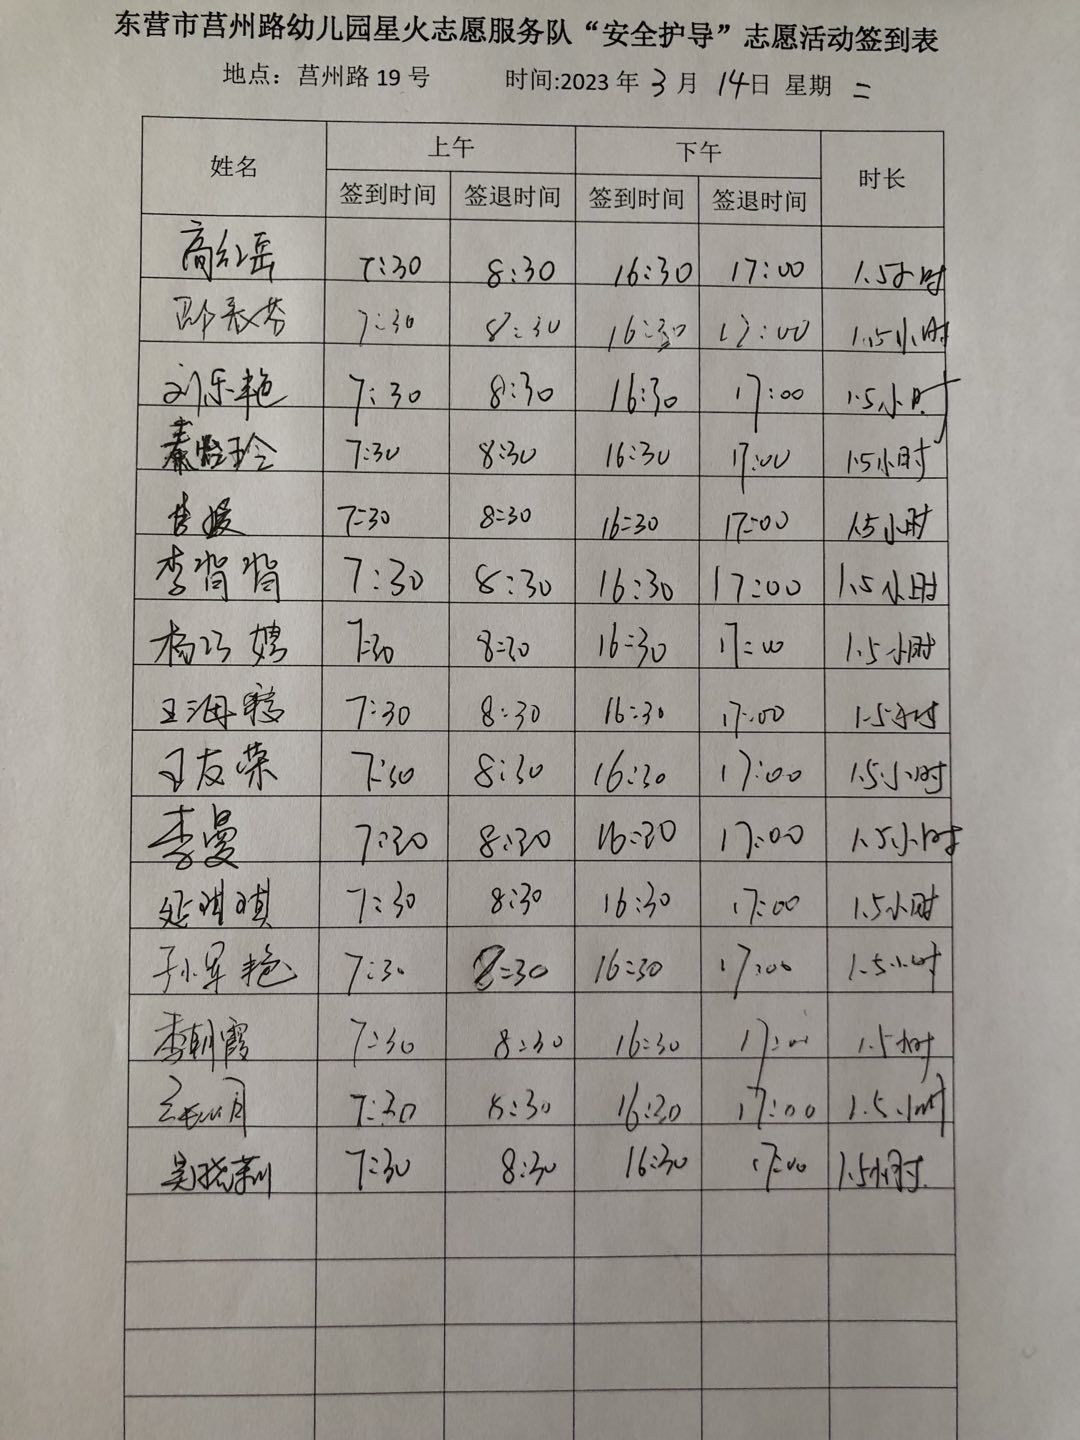 东营市莒州路幼儿园星火志愿服务队“安全护导”志愿活动签到表
地点：莒州路 19 号 时间:2023 年 3 月 14日 星期 二
姓名 上午 下午 时长
签到时间 签退时间 签到时间 签退时间
高红岳 7:30 8:30 16:30 17:00 1.5小时
7:30 8:30 16:30 17:00 1.5小时
刘乐艳 7:30 8:30 16:30 17:00 1.5小时
秦 玲 7:30 8:30 16:30 17:00 1.5小时
7:30 8:30 16:30 17:00 1.5小时
李 7:30 8:30 16:30 17:00 1.5小时
杨巧娉 7:30 8:30 16:30 17:00 1.5小时
王海 7:30 8:30 16:30 17:00 1.5小时
王友荣 7:30 8:30 16:30 17:00 1.5小时
李曼 7:30 8:30 16:30 17:00 1.5小时
延琪琪 7:30 8:30 16:30 17:00 1.5小时
孙军艳 7:30 8:30 16:30 17:00 1.5小时
李朝霞 7:30 8:30 16:30 17:00 1.5小时
7:30 8:30 16:30 17:00 1.5小时
吴晓莉 7:30 8:30 16:30 17:00 1.5小时